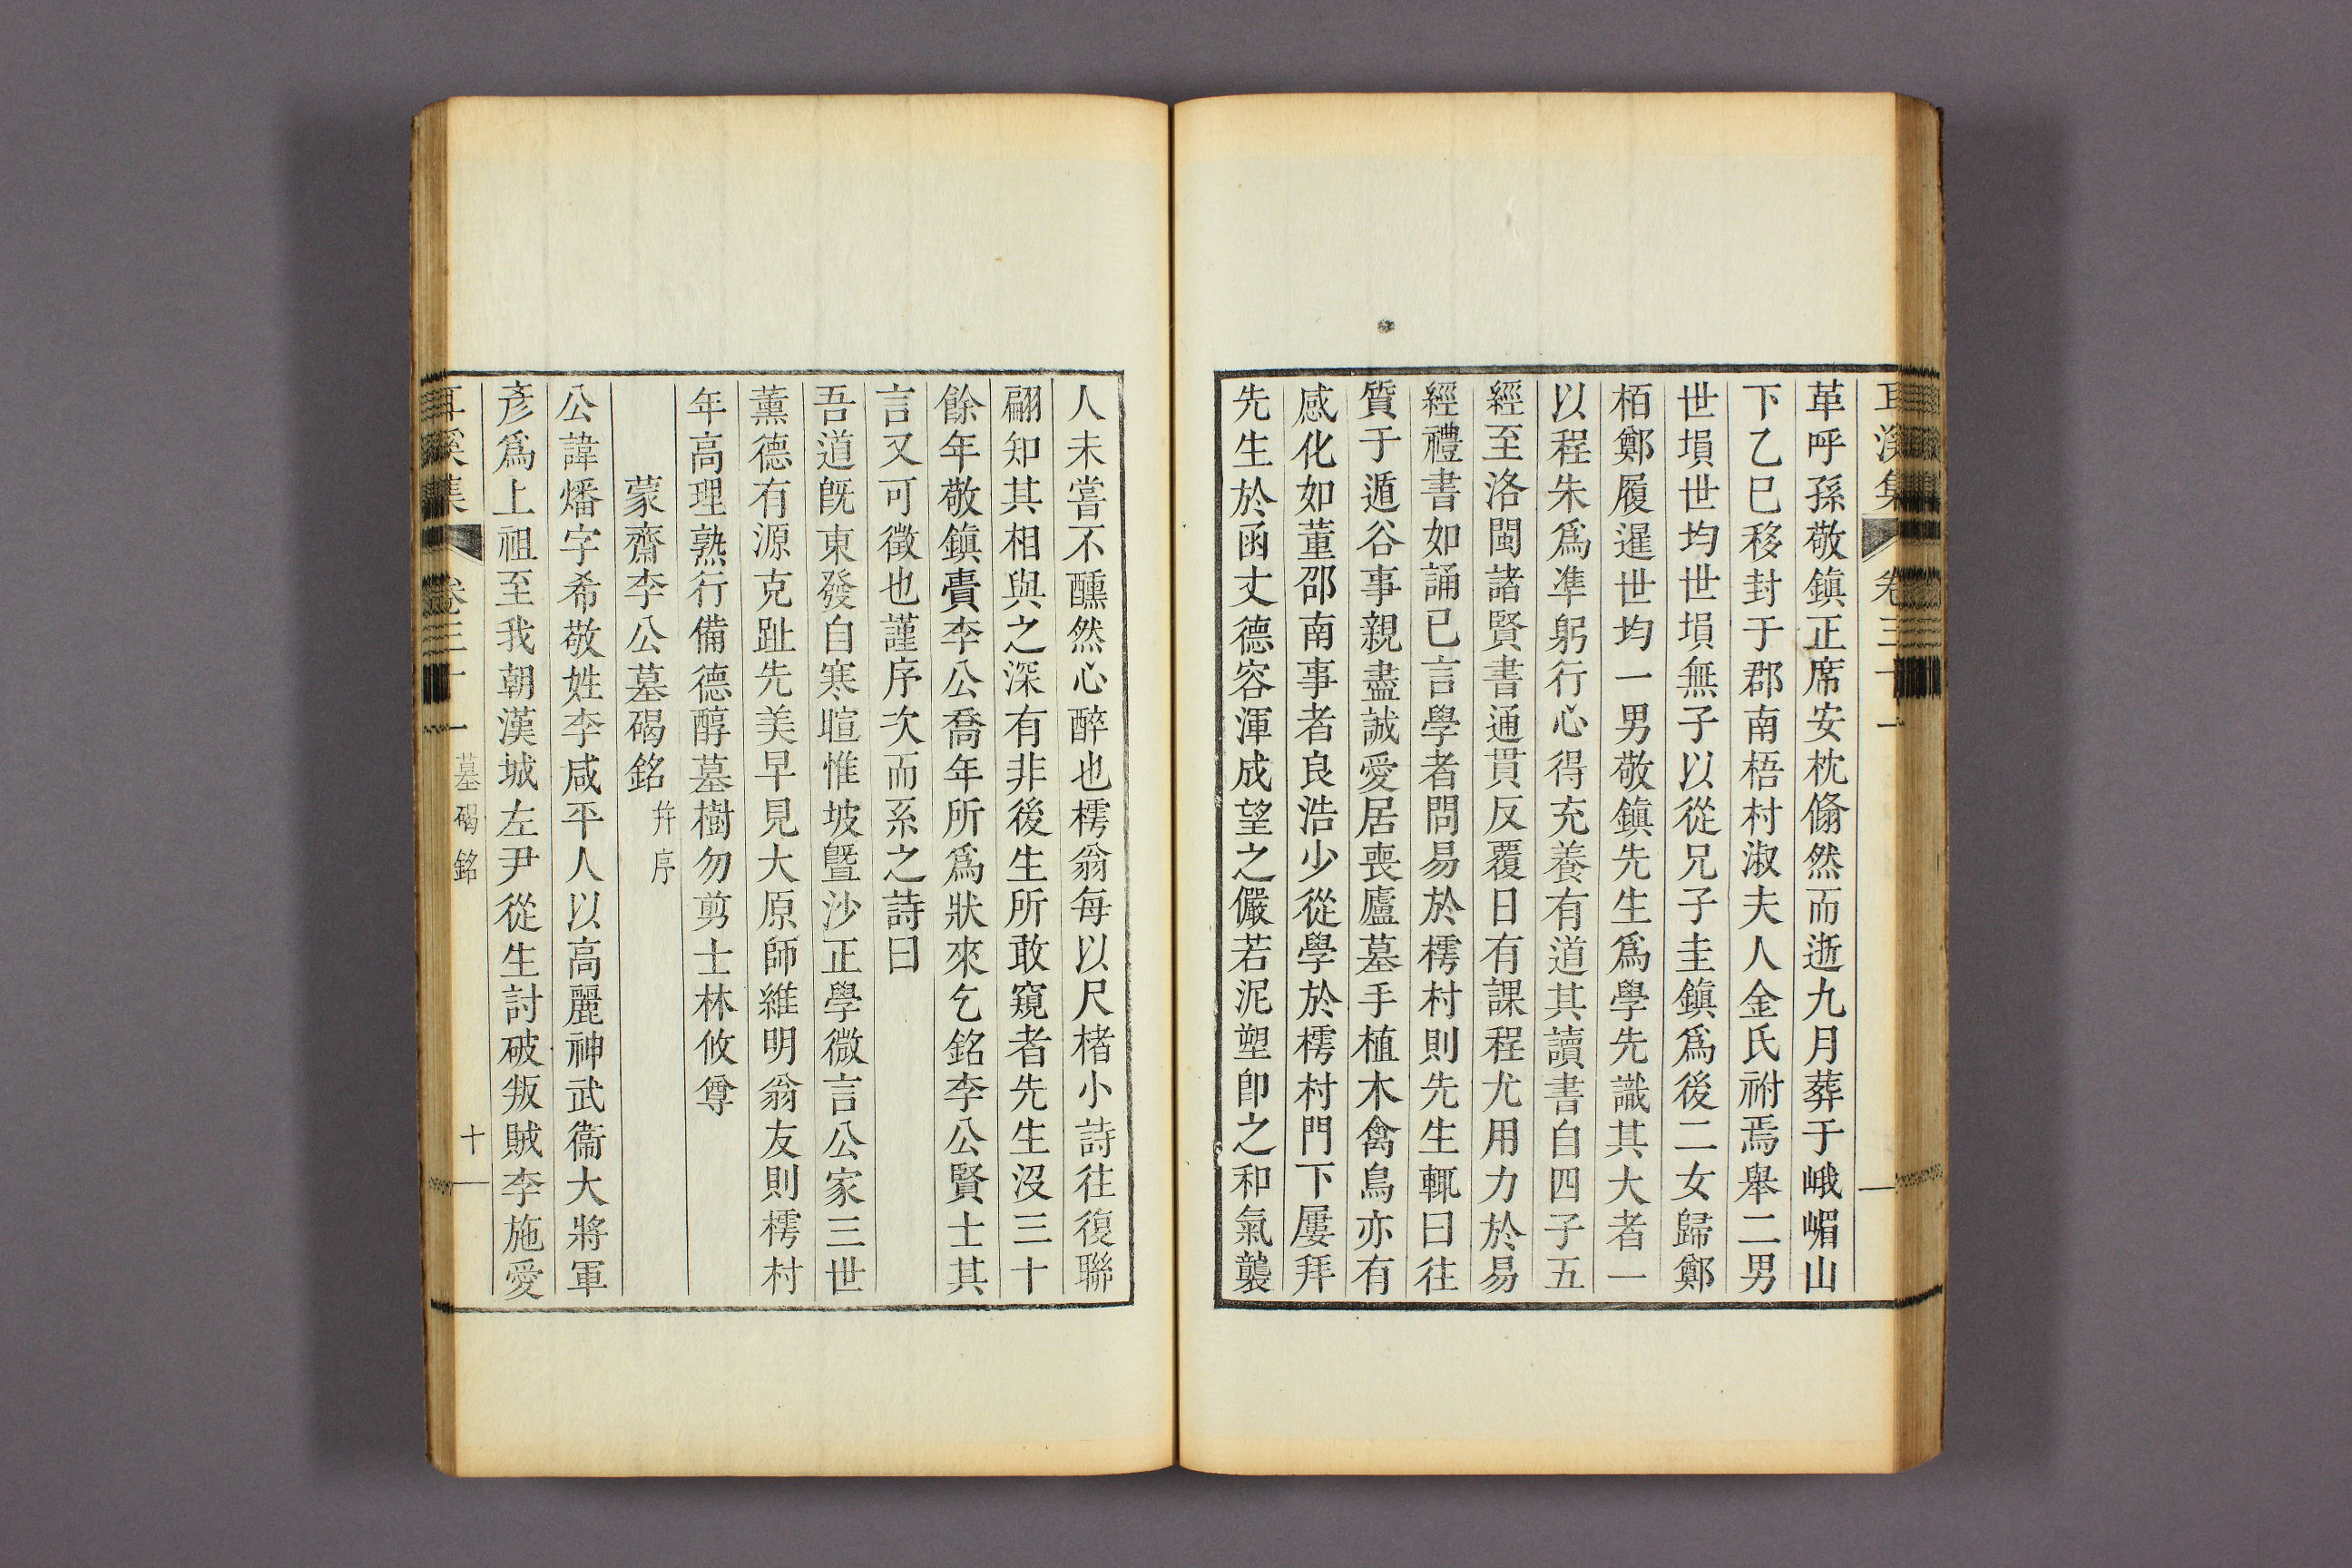 耳溪集 卷三十一
革呼孫敬鎭正席安枕翛然而逝九月葬于峨嵋山
下乙巳移封于郡南梧村淑夫人金氏祔焉舉二男
世塤世均世塤無子以從兄子圭鎭爲後二女歸鄭
栢鄭履暹世均一男敬鎭先生爲學先識其大者一
以程朱爲凖躬行心得充養有道其讀書自四子五
經至洛閩諸賢書通貫反覆日有課程尤用力於易
經禮書如誦已言學者問易於樗村則先生輒曰往
質于遁谷事親盡誠愛居喪廬墓手植木禽鳥亦有
感化如董邵南事者良浩少從學於樗村門下屢拜
先生於函丈德容渾成望之儼若泥塑卽之和氣襲
人未嘗不醺然心醉也樗翁每以尺楮小詩往復聯
翩知其相與之深有非後生所敢窺者先生沒三十
餘年敬鎭賷李公喬年所爲狀來乞銘李公賢士其
言又可徵也謹序次而系之詩曰
吾道旣東發自寒暄惟坡曁沙正學微言公家三世
薰德有源克趾先美早見大原師維明翁友則樗村
年高理熟行備德醇墓樹勿剪士林攸尊
蒙齋李公墓碣銘 幷序
公諱燔字希敬姓李咸平人以高麗神武衞大將軍
彥爲上祖至我朝漢城左尹從生討破叛賊李施愛
耳溪集 卷三十一 墓碣銘 十